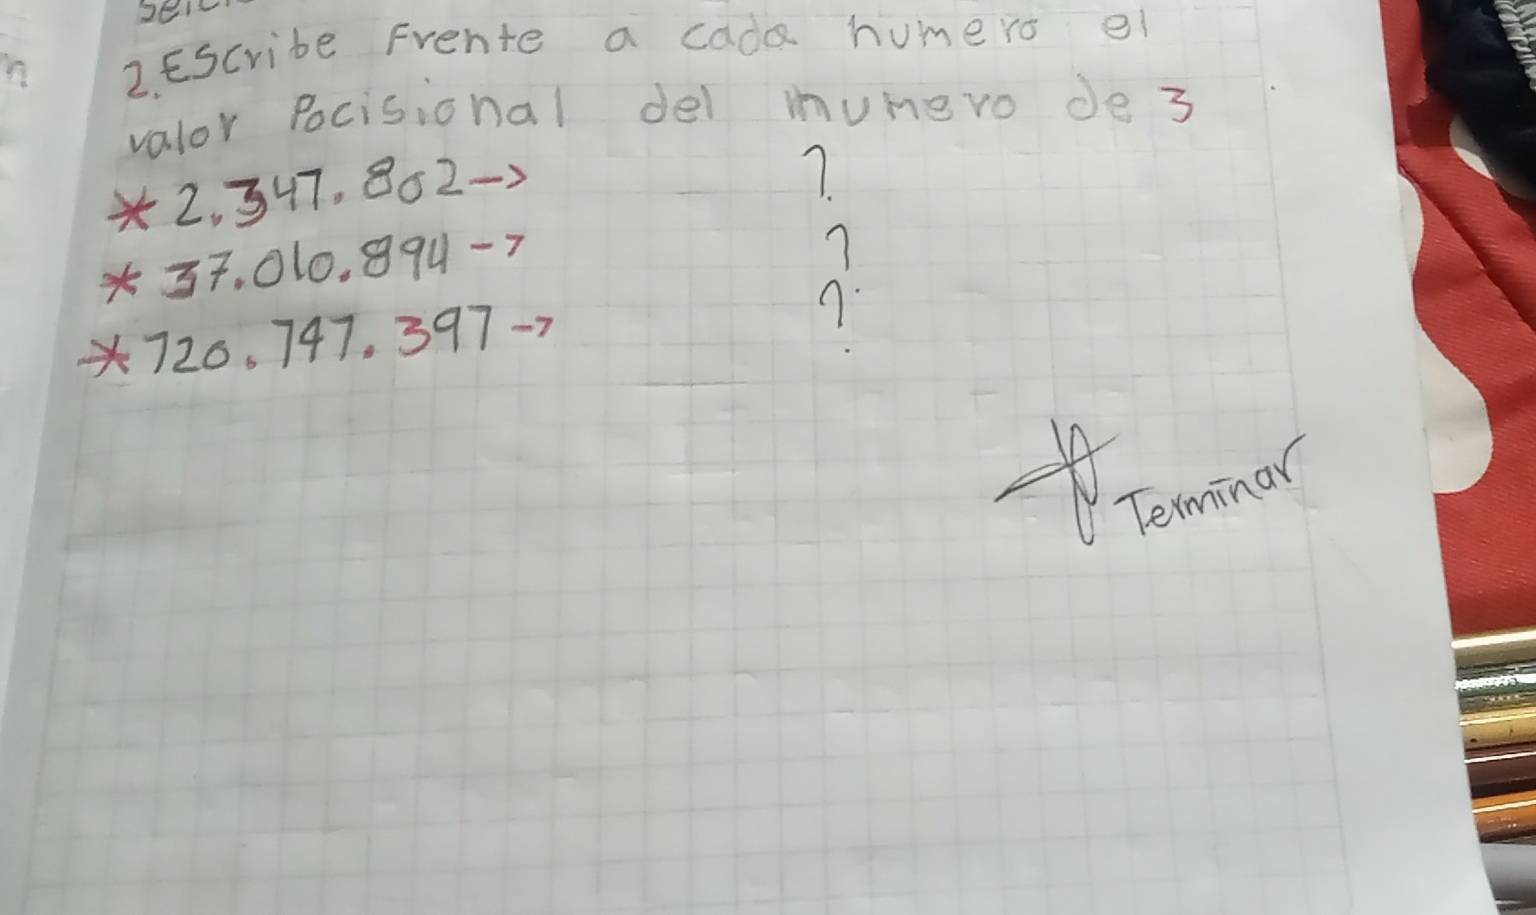 2. Escribe Frente a cada numero el
valor Pocisional del mumero de 3
* 2.347.802->
?
* 37.010.894->
?
* 720.747.397->
?
Terminar